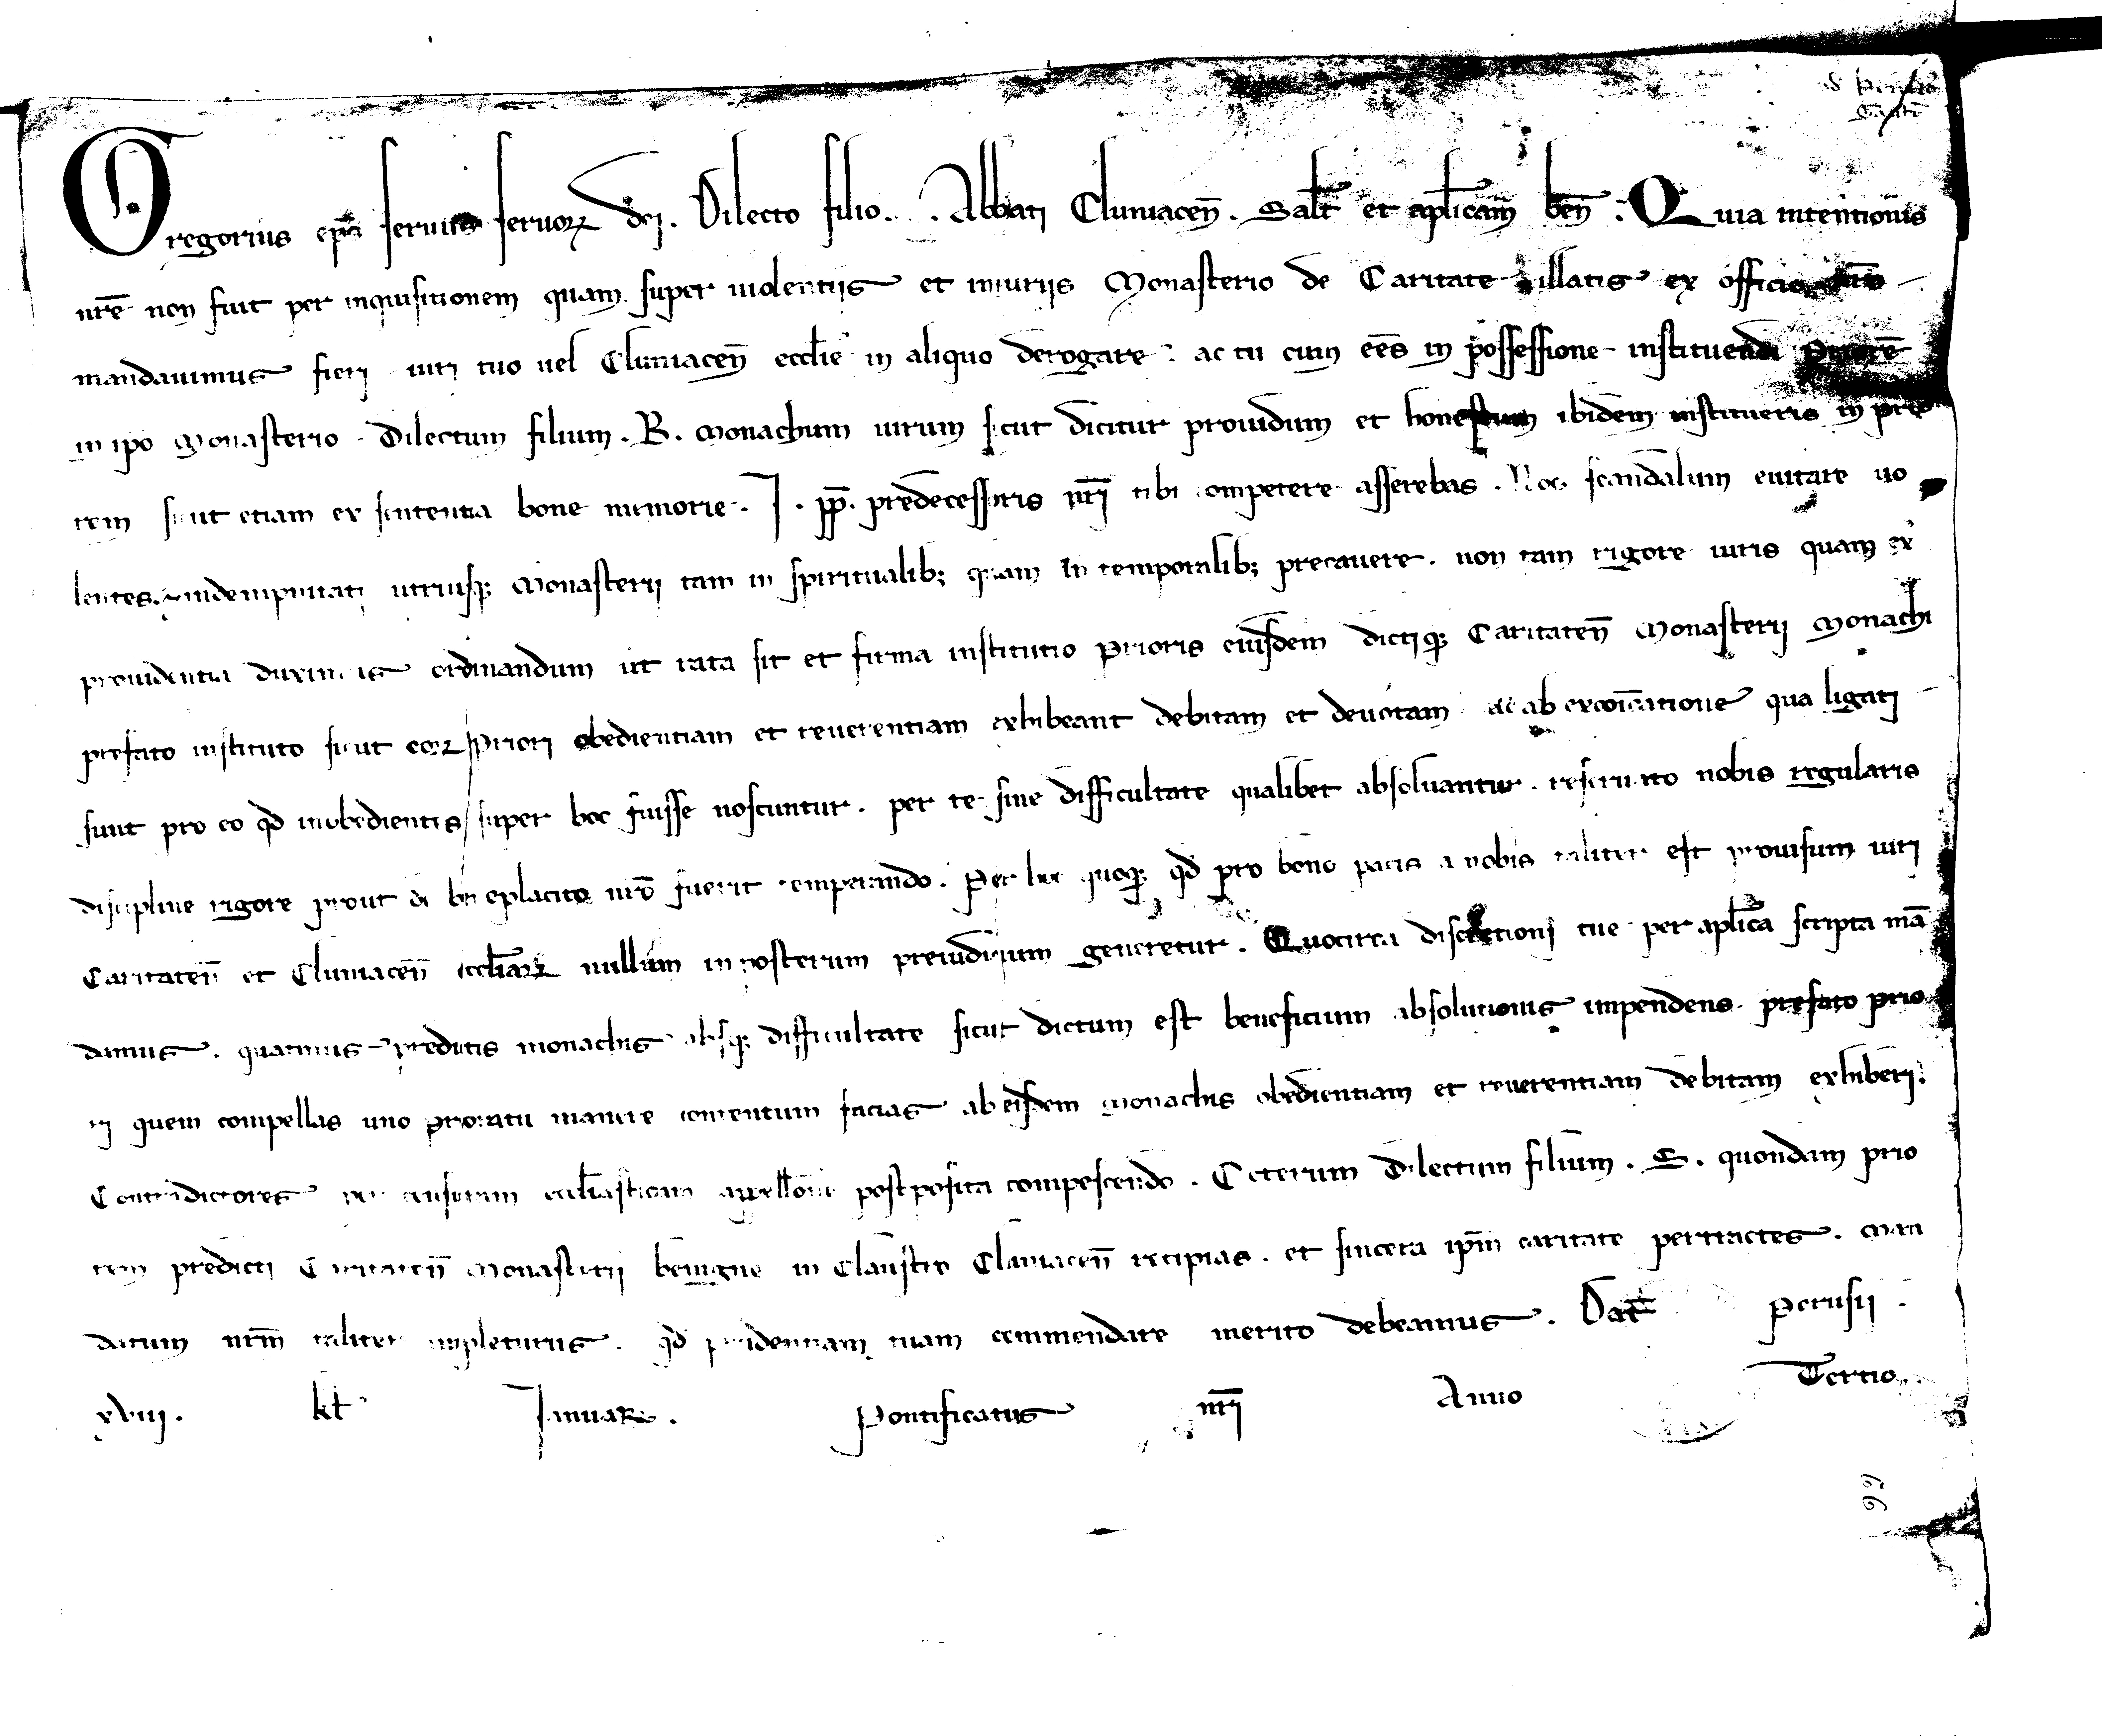 Gregorius ep̄s seruus seruoꝝ dei. Dilecto filio. . Abbati Cluniaceñ. Salt̄ et apl̄icam beñ. Quia intentionis
nr̄e non fuit per inquisitionem quam super uiolentijs et iniurijs Monasterio de Caritate illatis ex officio nr̄o
mandauimus fieri iuri tuo uel Cluniaceñ eccl̄ie in aliquo derogare. ac tu cum ēēs in possessione instituendi Priorē
in ip̄o Monasterio Dilectum filium . B. Monachum uirum sicut dicitur prouidum et honestum ibidem institueris in prio
rem sicut etiam ex sententia bone memorie . J . pp̄. predecessoris nr̄i tibi competere asserebas . Nos scandalum euitare uo
lentes. indempnitati utriusqꝫ Monasterij tam in spiritualibꝫ quam in temporalibꝫ precauere . non tam rigore iuris quam ex
prouidentia duximus ordinandum ut rata sit et firma institutio Prioris eiusdem dictiqꝫ Caritateñ Monasterij Monachi
prefato instituto sicut eoꝝ Priori obedientiam et reuerentiam exhibeant debitam et deuotam ac ab excōicatione qua ligati
sunt pro eo qd̄ inobedientes super hoc fuisse noscuntur . per te sine difficultate qualibet absoluantur . reseruato nobis regularis
discipline rigore prout de beneplacito nr̄o fuerit temperando . Per hoc quoqꝫ qd̄ pro bono pacis a nobis taliter est prouisum iuri
Caritateñ et Cluniaceñ eccl̄iaꝝ nullum in posterum preiudicium generetur . Quocirca discretioni tue per apl̄ica scripta mā
damus . quatinus predictis monachis absqꝫ difficultate sicut dictum est beneficium absolutionis impendens prefato prio
ri quem compellas uno prioratu manere contentum facias ab eisdem Monachis obedientiam et reuerentiam debitam exhiberi.
Contradictores per censuram eccl̄iasticam appellōne postposita compescendo . Ceterum Dilectum filium . S . quondam prio
rem predicti Caritateñ Monasterij benigne in Claustro Cluniaceñ recipias . et sincera ip̄m caritate pertractes . Man
datum nr̄m taliter impleturus . qd̄ prudentiam tuam commendare merito debeamus . Dat̄ Perusij .
xviij . kl̄ Januaꝝ . Pontificatus nr̄i Anno Tertio .
99